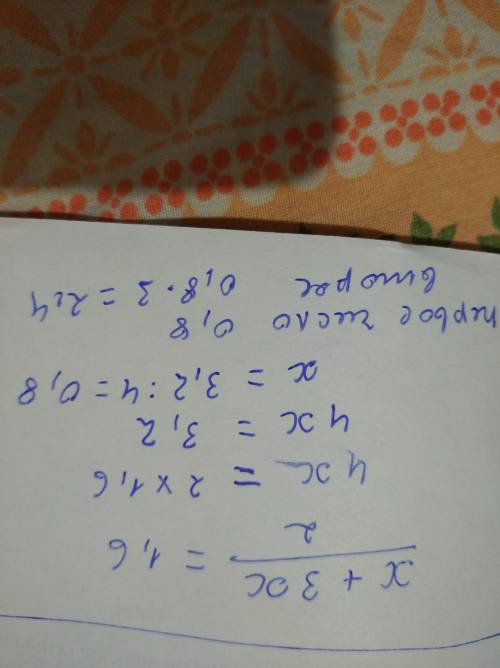 x + 3x
2
= 1,6
4x = 2 x 1,6
4x = 3,2
x = 3,2 : 4 = 0,8
первое число 0,8
второе 0,8 · 3 = 2,4